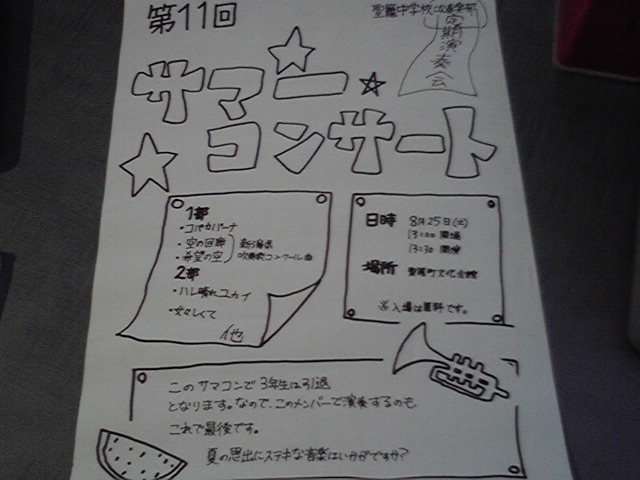 第11回
聖籠中学校吹奏楽部
定期演奏会
サマー
コンサート
1部
・コパカバーナ
・空の回廊
・希望の空
新潟県
吹奏楽コンクール曲
2部
・ハレ晴れユカイ
・女々しくて
他
日時 8月25日(土)
13:00 開場
13:30 開演
場所 聖籠町文化会館
※入場は無料です。
このサマコンで3年生は引退
となります。なので、このメンバーで演奏するのも
これで最後です。
夏の思出にステキな音楽はいかがですか?